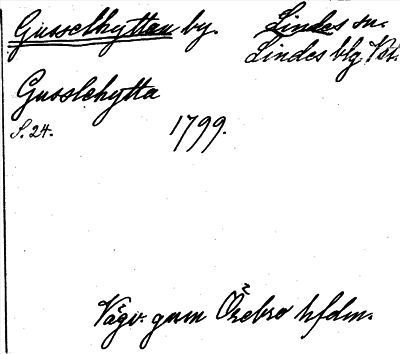 Gusselhyttan by. Lindes sn.
Lindes blg Kbl.
Gusslehytta
S. 24. 1799.
Vägv. genom Örebro hfdm.